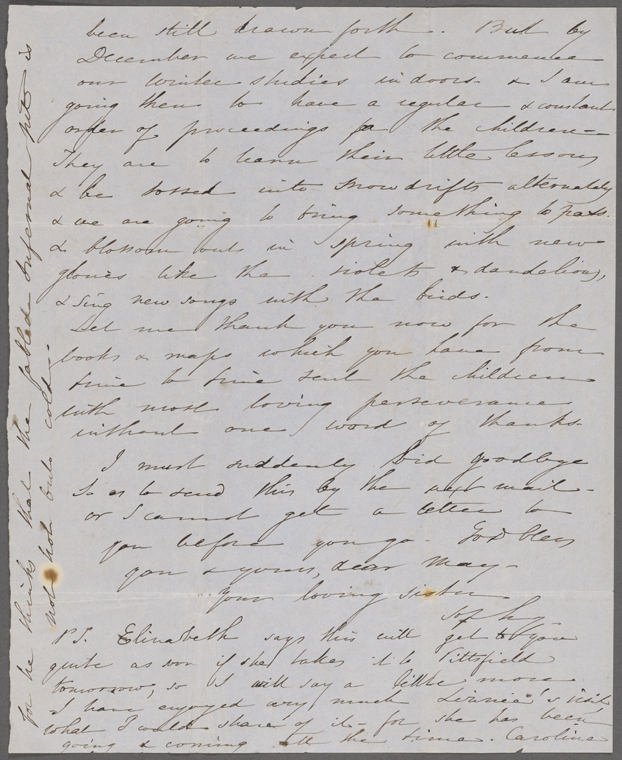 been still drawn forth. But by
December we expect to commence
our winter studies indoors & I am
going then to have a regular & constant
order of proceedings for the children—
They are to learn their little lessons
& be tossed into snowdrifts alternately
& we are going to bring something to pass.
& blossom out in spring with new
glories like the violets & dandelions,
& sing new songs with the birds.
Let me thank you now for the
books & maps which you have from
time to time sent the children
with most loving perseverance
without one word of thanks.
I must suddenly bid goodbye
so as to send this by the next mail—
or I cannot get a letter to
you before you go. God bless
you & yours, dear May—
Your loving sister
P.S. Elizabeth says this will get to you
quite as soon if she takes it to Pittsfield
tomorrow, so I will say a little more
I have enjoyed very much Lizzie's visit
what I could share of it— for she has been
going & coming all the time. Caroline
for he thinks that the fabled Infernal pit is
not hot but cold.